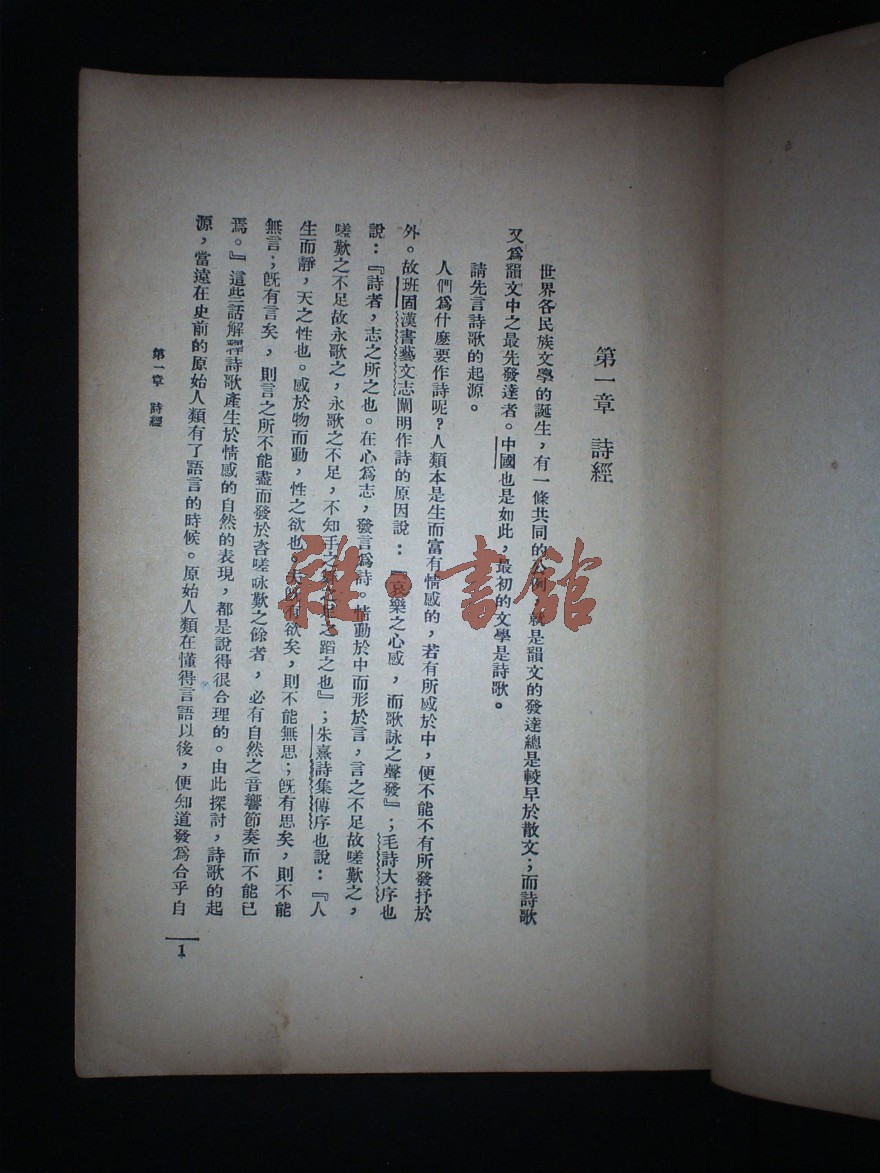 第一章 詩經
世界各民族文學的誕生，有一條共同的公例，就是韻文的發達總是較早於散文；而詩歌
又爲韻文中之最先發達者。中國也是如此，最初的文學是詩歌。
請先言詩歌的起源。
人們爲什麼要作詩呢？人類本是生而富有情感的，若有所感於中，便不能不有所發抒於
外。故班固漢書藝文志闡明作詩的原因說：『哀樂之心感，而歌詠之聲發』；毛詩大序也
說：『詩者，志之所之也。在心爲志，發言爲詩。情動於中而形於言，言之不足故嗟歎之，
嗟歎之不足故永歌之，永歌之不足，不知手之舞之足之蹈之也』；朱熹詩集傳序也說：『人
生而靜，天之性也。感於物而動，性之欲也。夫既有欲矣，則不能無思；既有思矣，則不能
無言；既有言矣，則言之所不能盡而發於咨嗟咏歎之餘者，必有自然之音響節奏而不能已
焉。』這些話解釋詩歌產生於情感的自然的表現，都是說得很合理的。由此探討，詩歌的起
源，當遠在史前的原始人類有了語言的時候。原始人類在懂得言語以後，便知道發爲合乎自
第一章 詩經
1
雜·書館